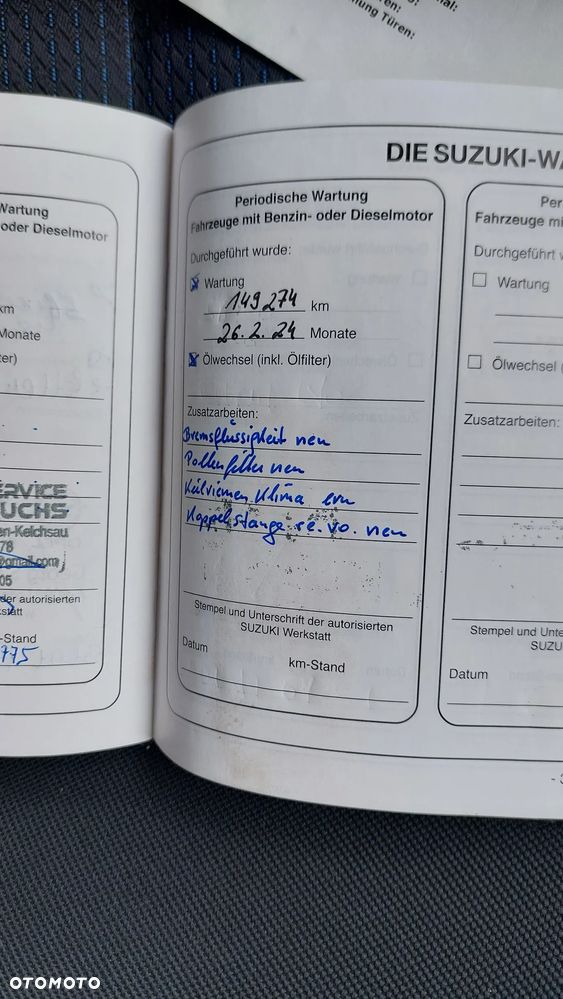 nal:
en:
nung Türen:
Wartung
oder Dieselmotor
km
Monate
ter)
ERVICE
UCHS
en-Kelchsau
78
@gmail.com
05
der autorisierten
kstatt
-Stand
775
DIE SUZUKI-WA
Periodische Wartung
Fahrzeuge mit Benzin- oder Dieselmotor
Durchgeführt wurde:
Wartung
149274 km
26.2.24 Monate
Ölwechsel (inkl. Ölfilter)
Zusatzarbeiten:
Bremsflüssigkeit neu
Pollenfilter neu
Keilriemen Klima ern
Koppelstange re. vo. neu
Stempel und Unterschrift der autorisierten
SUZUKI Werkstatt
Datum km-Stand
Per
Fahrzeuge mi
Durchgeführt w
Wartung
Ölwechsel (
Zusatzarbeiten:
Stempel und Unte
SUZU
Datum
OTOMOTO